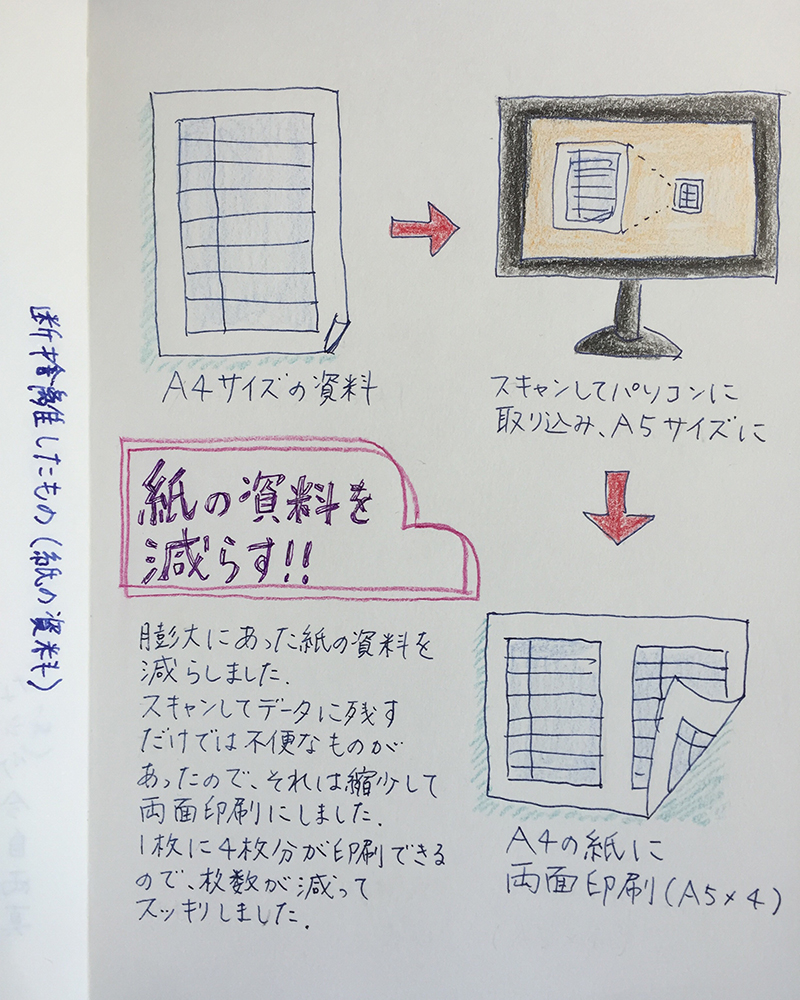 断捨離したもの(紙の資料)
A4サイズの資料
スキャンしてパソコンに
取り込み、A5サイズに
紙の資料を
減らす!!
膨大にあった紙の資料を
減らしました.
スキャンしてデータに残す
だけでは不便なものが
あったので、それは縮少して
両面印刷にしました.
1枚に4枚分が印刷できる
ので、枚数が減って
スッキリしました.
A4の紙に
両面印刷(A5×4)